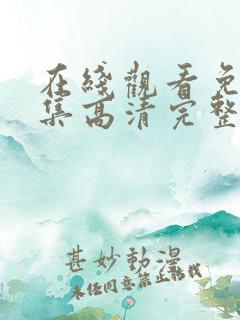 在綫觀看免
集高清完整
甚妙動漫
未經同意禁止轉載